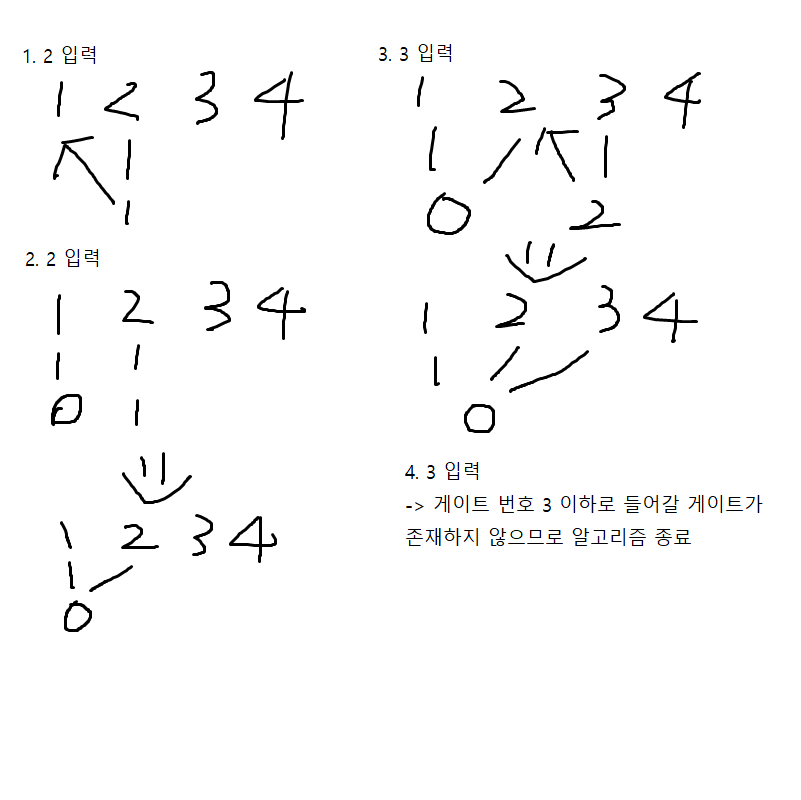 1. 2 입력
1 2 3 4
1
1
2. 2 입력
1 2 3 4
1 1
0 1
1 2 3 4
1
0
3. 3 입력
1 2 3 4
1 1
0 2
1 2 3 4
1
0
4. 3 입력
-> 게이트 번호 3 이하로 들어갈 게이트가
존재하지 않으므로 알고리즘 종료